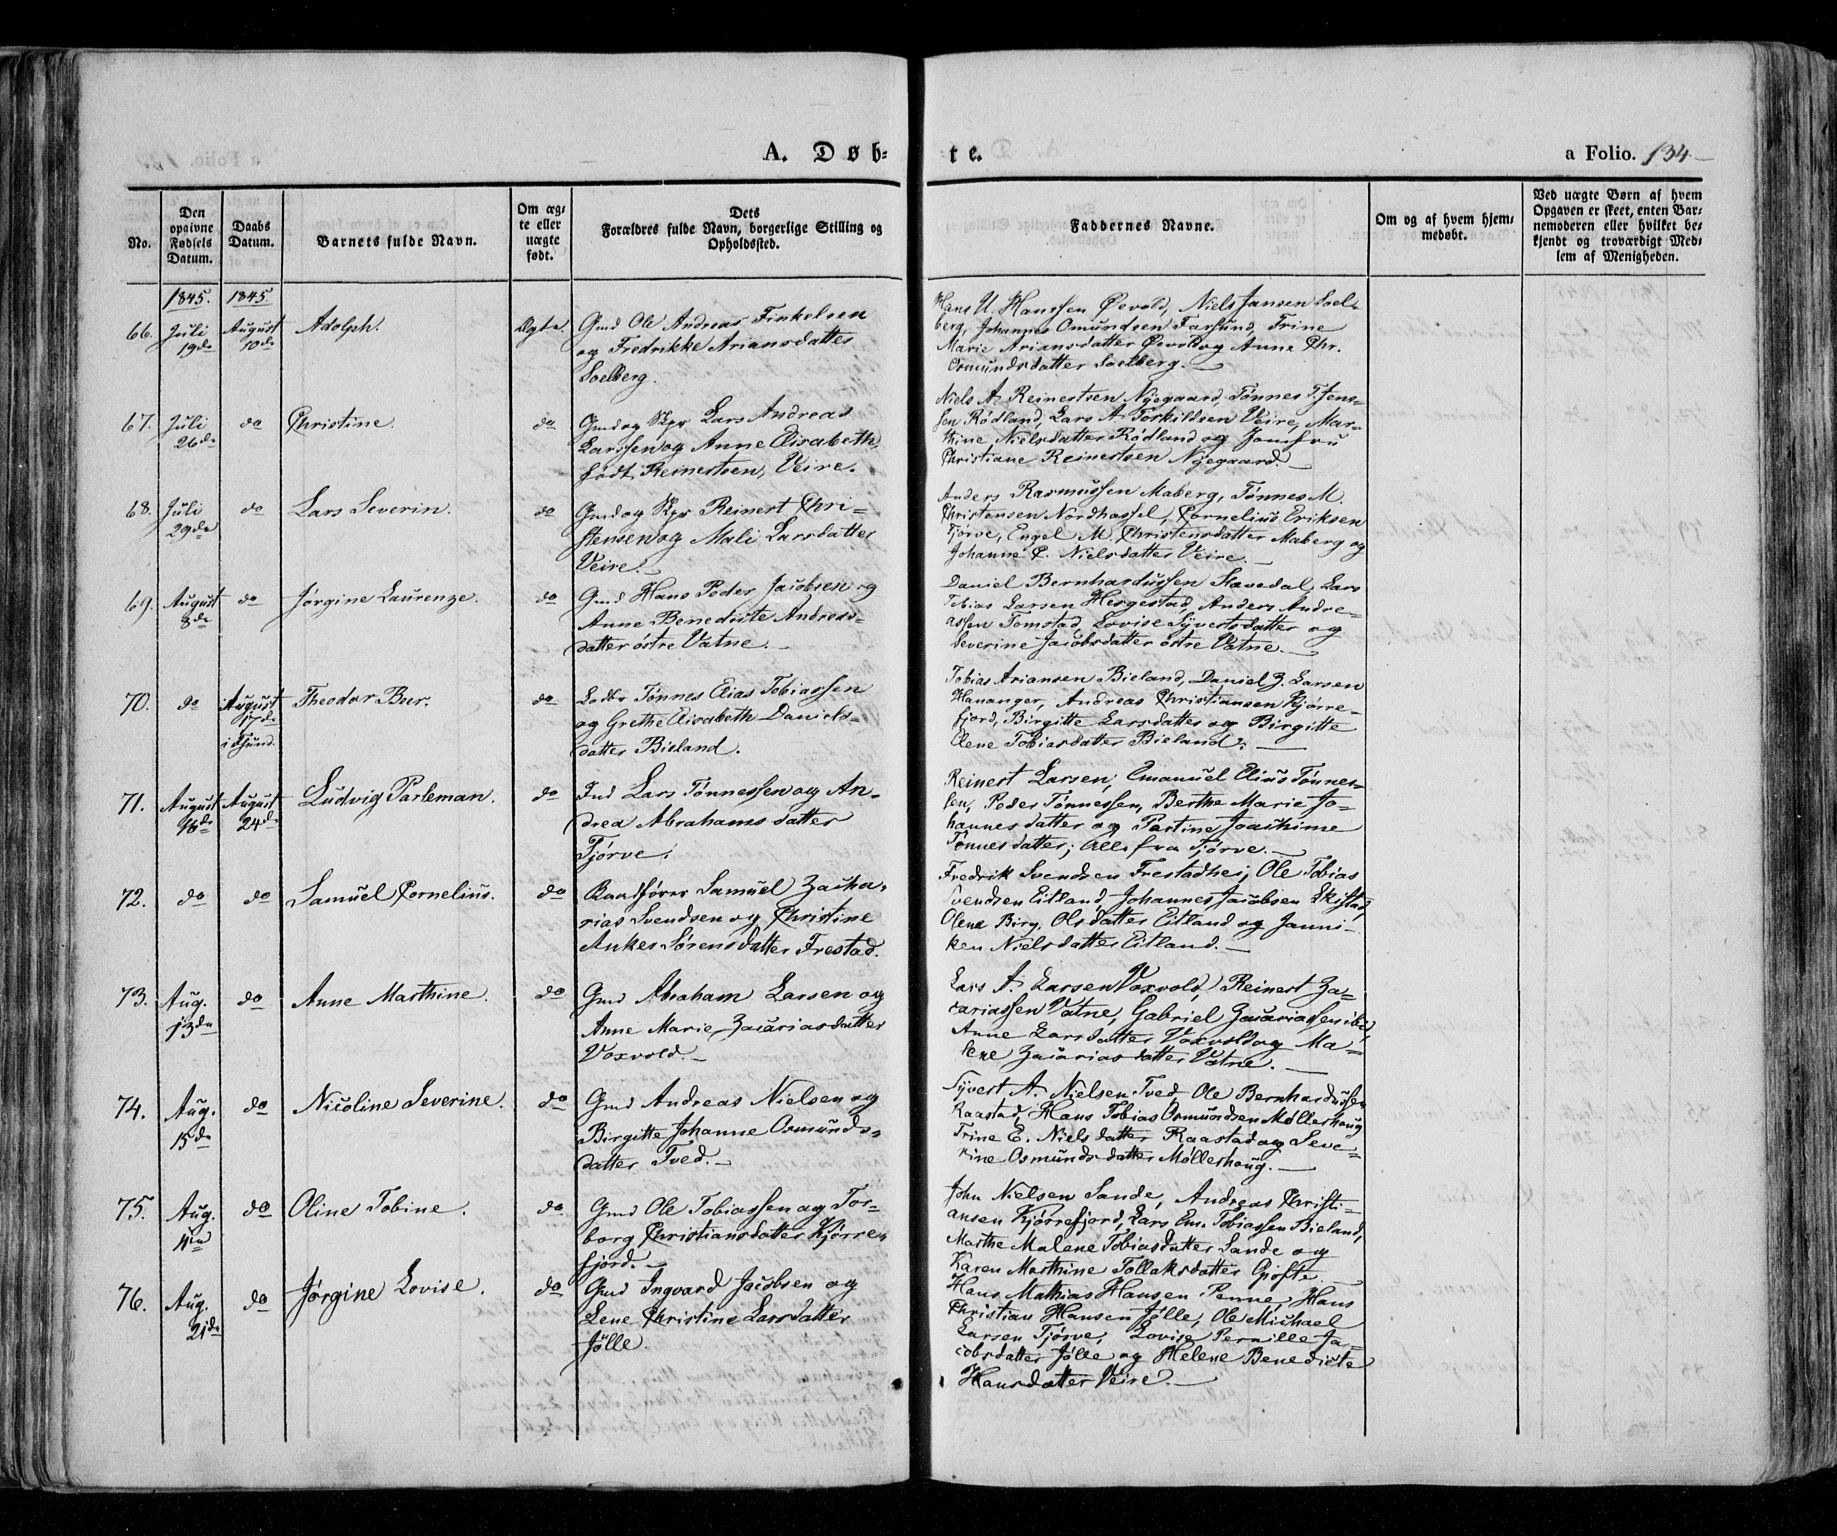 A. Døb-
te.
a Folio. 134.
No.
Den opgivne Fødsels Datum.
Daabs Datum.
Barnets fulde Navn.
Om ægte eller uægte født.
Dets Forældres fulde Navn, borgerlige Stilling og Opholdssted.
Faddernes Navne.
Om og af hvem hjemmedøbt.
Ved uægte Børn af hvem Opgaven er skeet, enten Barnemoderen eller hvilket bekjendt og troværdigt Medlem af Menigheden.
1845. 1845.
66. Juli 19de August 10de Adolph. Ægte.
Gmd Ole Andreas Finkelsen
og Fredrikke Ariansdatter
Soelberg.
Hans U. Hanssen Øevold, Niels Jansen Soel-
berg, Johannes Omundsen Farsund, Trine
Marie Ariansdatter Øevold og Anne Chr.
Osmundsdatter Soelberg.
67. Juli 26de do Christine. do
Gmd og Skpr Lars Andreas
Larssen og Anne Elisabeth,
født Reinertsen, Veire.
Niels A. Reinertsen Nyegaard, Tønnes T. Jens-
sen Rødland, Lars A. Torkildsen Veire, Mar-
thine Nielsdatter Rødland og Jomfru
Christiane Reinertsen Nyegaard.
68. Juli 29de do Lars Severin. do
Gmd og Skpr Reinert Chri-
stensen og Mali Larsdatter
Veire.
Anders Rasmussen Maberg, Tønnes M.
Christensen Nordhassel, Cornelius Eriksen
Tjørve, Engel M. Christensdatter Maberg og
Johanne C. Nielsdatter Veire.
69. August 8de do Jørgine Laurenze. do
Gmd Hans Peder Jacobsen og
Anne Benedicte Andreas-
datter østre Vatne.
Daniel Bernhardussen Stavedal, Lars
Tobias Larsen Hesgestad, Anders Andre-
assen Tomstad, Lovise Syvertsdatter og
Severine Jacobsdatter østre Vatne.
70. do August 17de i Fsund. Theodor Bur. do
Lods Tønnes Elias Tobiassen
og Grethe Elisabeth Daniels-
datter Bieland.
Tobias Ariansen Bieland, Daniel Z. Larsen
Hananger, Andreas Christiansen Kjørre-
fjord, Birgitte Larsdatter og Birgitte
Olene Tobiasdatter Bieland.
71. August 16de August 24de Ludvig Parleman. do
Ind Lars Tønnessen og An-
drea Abrahamsdatter
Tjørve.
Reinert Larsen, Emanuel Elius Tønnes-
sen, Peder Tønnessen, Berthe Marie Jo-
hannesdatter og Partine Joachime
Tønnesdatter; Alle fra Tjørve.
72. do do Samuel Cornelius. do
Baadfører Samuel Zacha-
rias Svendsen og Christine
Ankes Sørensdatter Frestad.
Fredrik Svendsen Frestadhei, Ole Tobias
Svendsen Eitland, Johannes Jacobsen Skistad,
Olene Birg. Olsdatter Eitland og Janni-
ken Nielsdatter Eitland.
73. Aug. 13de do Anne Marthine. do
Gmd Abraham Larsen og
Anne Marie Zacariasdatter
Voxvold.
Lars A. Larsen Voxvold, Reinert Za-
cariassen Vatne, Gabriel Zacariassen ibd,
Anne Larsdatter Voxvold og Ma-
lene Zacariasdatter Vatne.
74. Aug. 15de do Nicoline Severine. do
Gmd Andreas Nielsen og
Birgitte Johanne Osmunds-
datter Tved.
Syvert A. Nielsen Tved, Ole Bernhardussen
Raastad, Hans Tobias Osmundsen Møllerhaug
Trine E. Nielsdatter Raastad og Seve-
rine Osmundsdatter Møllerhaug.
75. Aug. 11te do Oline Tobine. do
Gmd Ole Tobiassen og Tor-
borg Christiansdatter Kjørre-
fjord.
John Nielsen Sande, Andreas Christi-
ansen Kjørrefjord, Lars Em. Tobiassen Bieland,
Marthe Malene Tobiasdatter Sande og
Karen Marthine Tollaksdatter Gjofte.
76. Aug. 21de do Jørgine Lovise. do
Gmd Ingvard Jacobsen og
Lene Christine Larsdatter
Jølle.
Hans Mathias Hansen Penne, Hans
Christian Hansen Jølle, Ole Michael
Larsen Tjørve, Lovise Pernille Ja-
cobsdatter Jølle og Helene Benedicte
Hansdatter Veire.